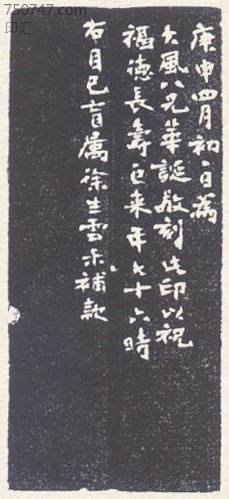 750747.com
印汇
庚申四月初一日為
大風八兄華誕敬刻此印以祝
福德長壽巨来年七十六時
右目已盲属徐生雲尗補款